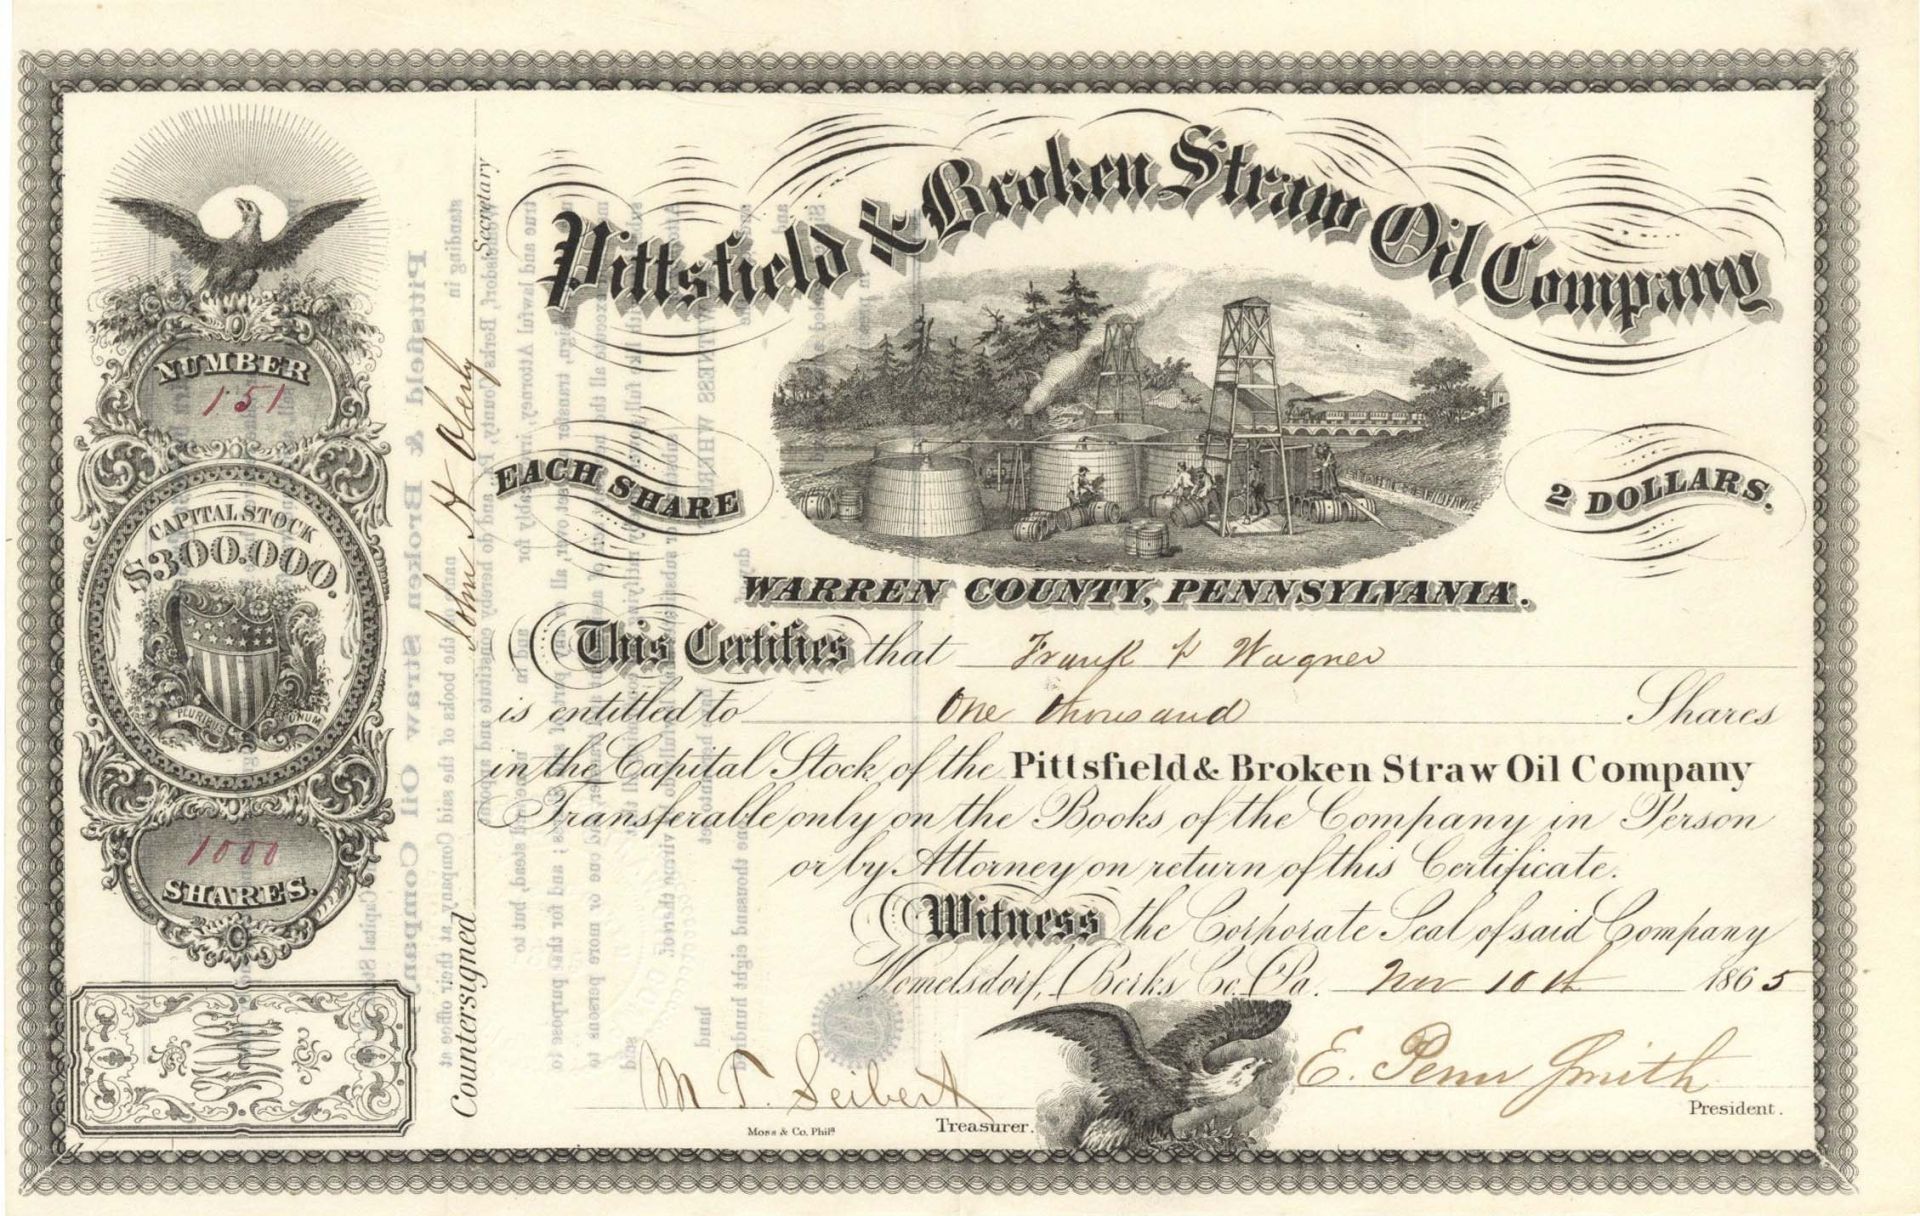 Pittsfield & Broken Straw Oil Company
NUMBER
151
CAPITAL STOCK
$300.000.
PLURIBUS UNUM
1000
SHARES.
Countersigned John H Oberly Secretary
EACH SHARE
2 DOLLARS.
WARREN COUNTY, PENNSYLVANIA.
This Certifies that Frank P Wagner
is entitled to One thousand Shares
in the Capital Stock of the Pittsfield & Broken Straw Oil Company
Transferable only on the Books of the Company in Person
or by Attorney on return of this Certificate.
Witness the Corporate Seal of said Company
Womelsdorf, Berks Co. Pa. Nov 10th 1865
M T. Seibert
Treasurer.
E. Penn Smith
President.
Moss & Co. Phila